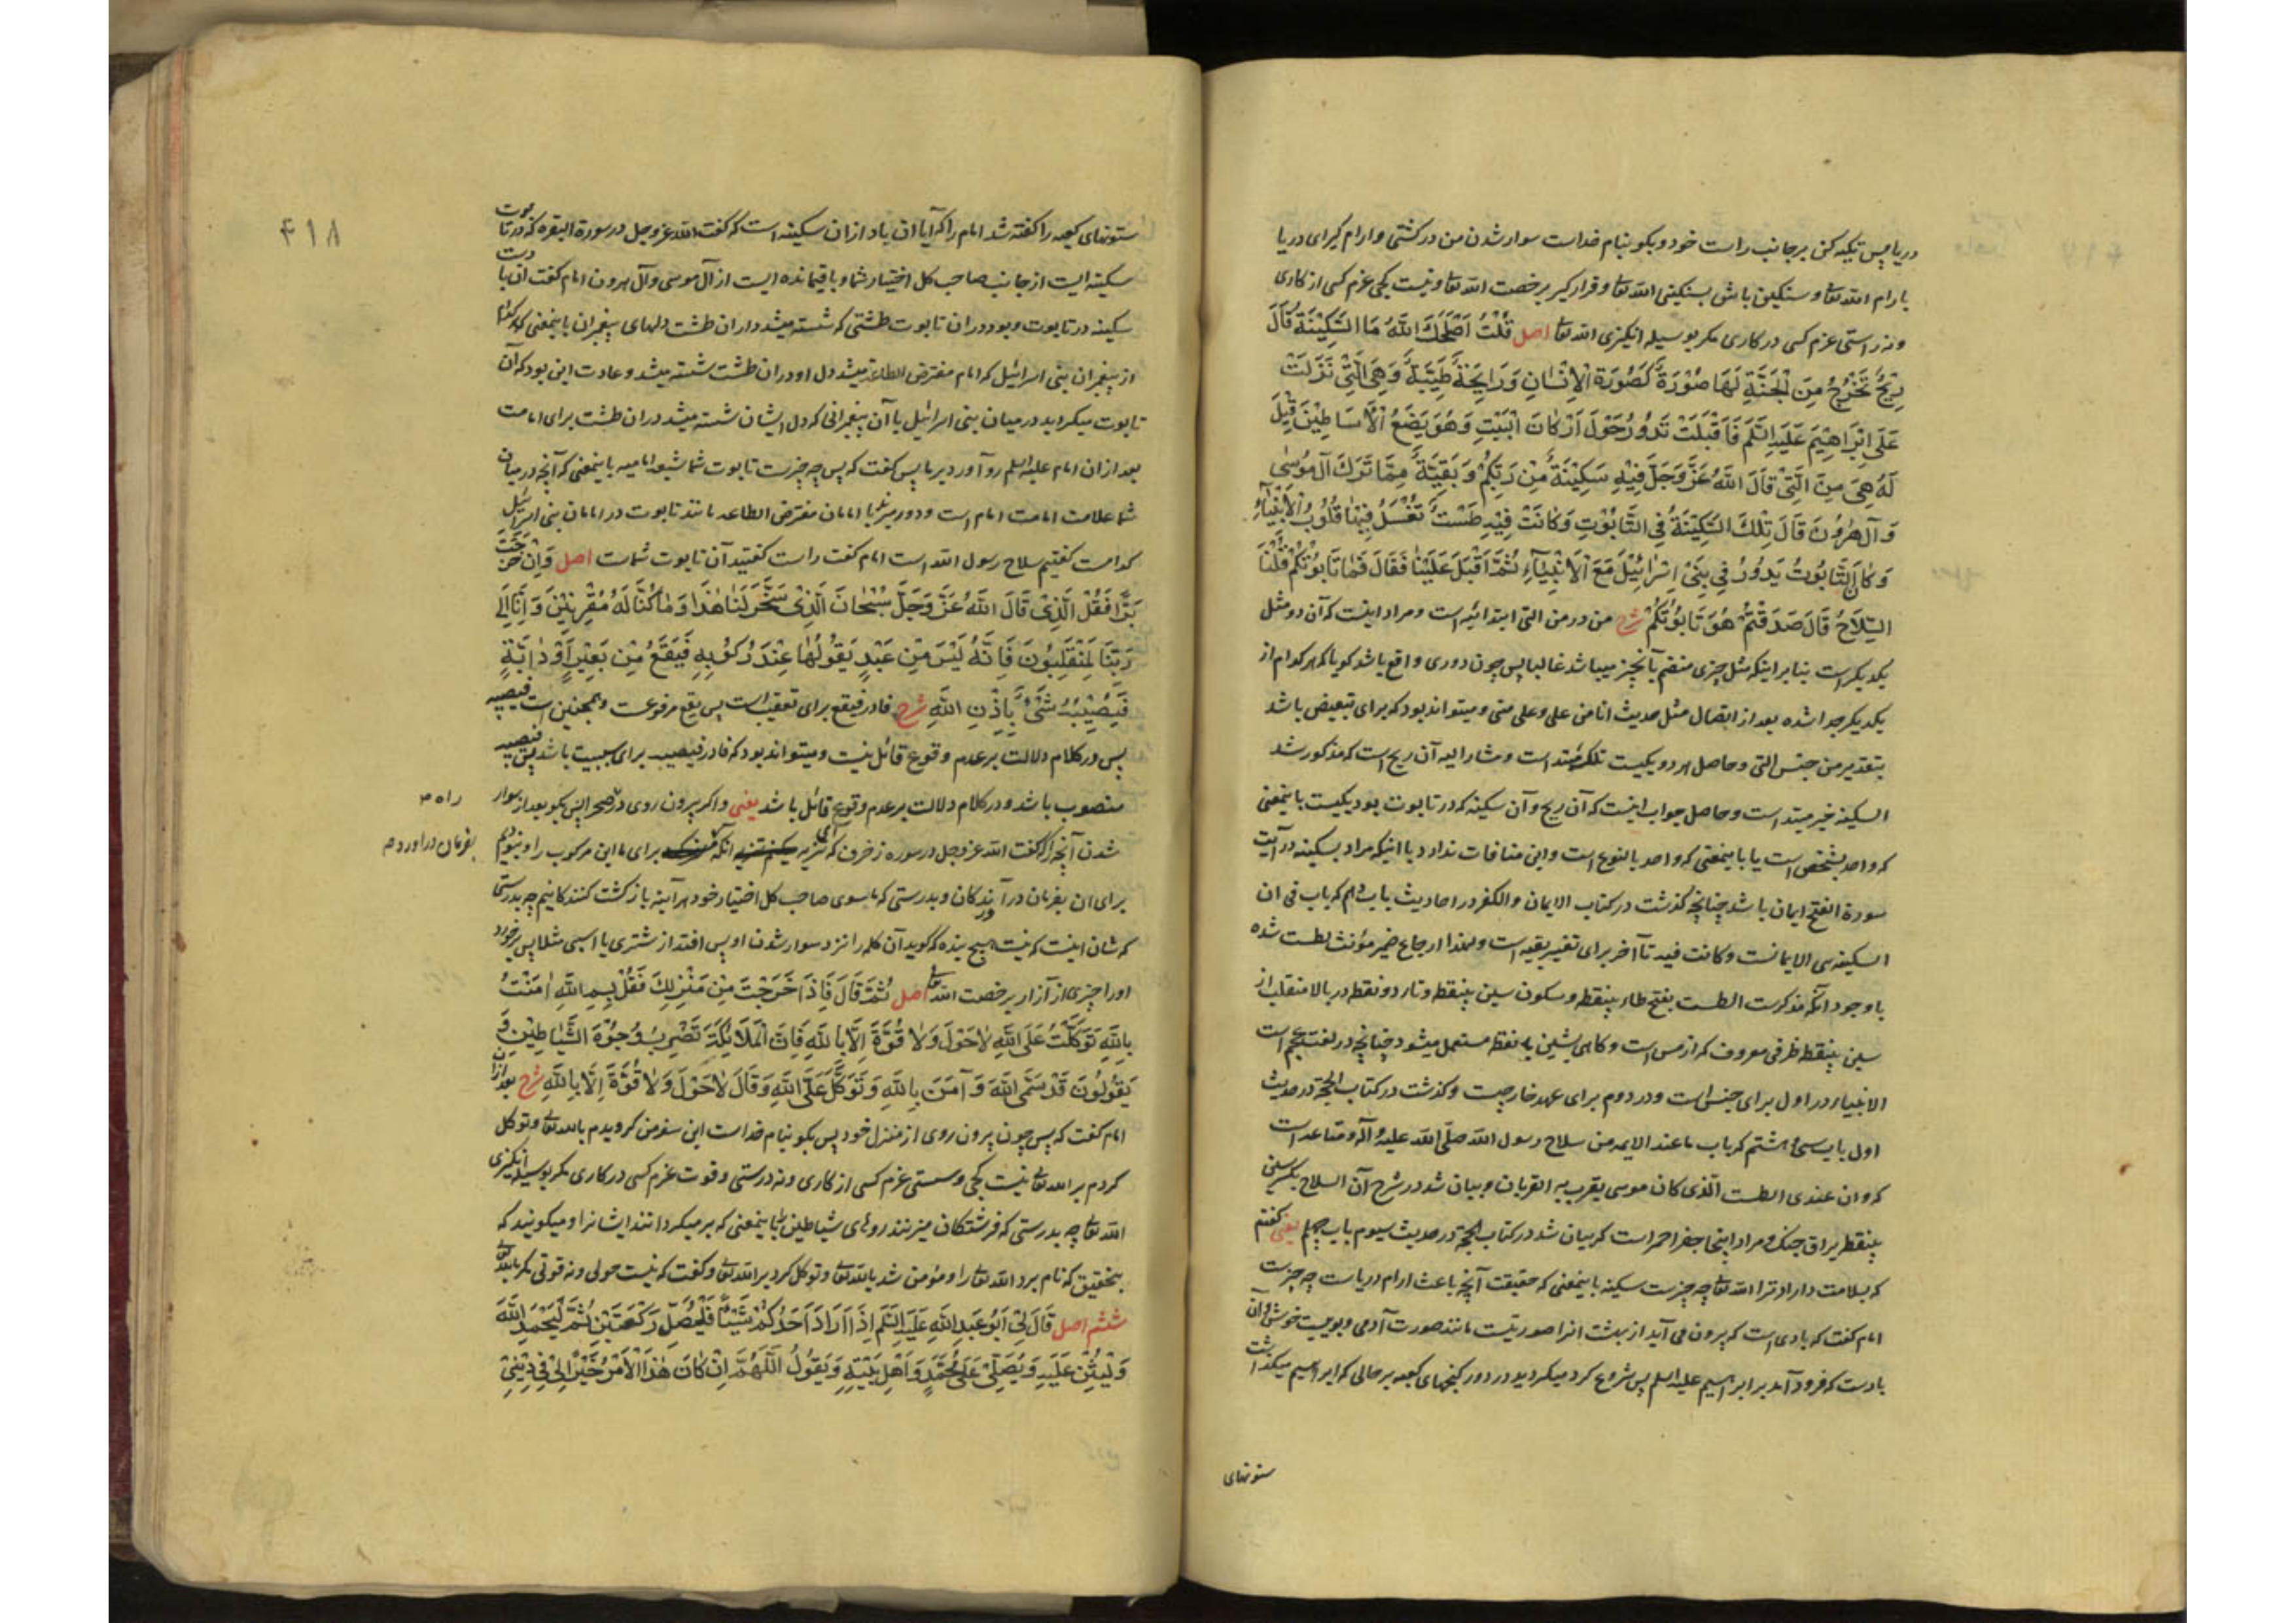 دریا پس تکیه کن بر جانب راست خود و بکو بنام خداست سوار شدن من در کشتی و ارام کیر ای دریا
بارام الله تعالی و سنکین باش بسنکینی الله تعالی و قرار کیر برخصت الله تعالی و نیست کجی عزم کسی از کاری
و نه راستی عزم کسی در کاری مکر بوسیله انکیزی الله تعالی اصل قُلْتُ اَصْلَحَكَ اللهُ مَا السَّكِيْنَةُ قَالَ
رِيْحٌ تَخْرُجُ مِنَ الْجَنَّةِ لَهَا صُوْرَةٌ كَصُوْرَةِ الْاِنْسَانِ وَرَايِحَةٌ طَيِّبَةٌ وَهِيَ الَّتِيْ نَزَلَتْ
عَلَى اِبْرَاهِيْمَ عَلَيْهِ السَّلَمُ فَاَقْبَلَتْ تَدُوْرُ حَوْلَ اَرْكَانِ الْبَيْتِ وَهُوَ يَضَعُ الْاَسَاطِيْنَ قِيْلَ
لَهُ هِيَ مِنَ الَّتِيْ قَالَ اللهُ عَزَّ وَجَلَّ فِيْهِ سَكِيْنَةٌ مِنْ رَبِّكُمْ وَبَقِيَّةٌ مِمَّا تَرَكَ آلُ مُوْسٰى
وَآلُ هٰرُوْنَ قَالَ تِلْكَ السَّكِيْنَةُ فِي التَّابُوْتِ وَكَانَتْ فِيْهِ طَسْتٌ تُغْسَلُ فِيْهَا قُلُوْبُ الْاَنْبِيَاءِ
وَكَانَ التَّابُوْتُ يَدُوْرُ فِيْ بَنِيْ اِسْرَائِيْلَ مَعَ الْاَنْبِيَاءِ ثُمَّ اَقْبَلَ عَلَيْنَا فَقَالَ فَمَا تَابُوْتُكُمْ قُلْنَا
السِّلَاحُ قَالَ صَدَقْتُمْ هُوَ تَابُوْتُكُمْ شرح من در من التی ابتدائیه است و مراد اینست که آن دو مثل
یکدیکر است بنابر اینکه مثل چیزی منضم بآنچیز میباشد غالبا پس چون دوری واقع باشد کویا که هر کدام از
یکدیکر جدا شده بعد از اتصال مثل حدیث انا من علی و علی منی و میتواند بود که برای تبعیض باشد
بتقدیر من جنس التی و حاصل هر دو یکیست تلک مبتداست و مشار الیه آن ریح است که مذکور شد
السکینه خبر مبتداست و حاصل جواب اینست که آن ریح و آن سکینه که در تابوت بود یکیست باینمعنی
که واحد بشخص است یا باینمعنی که واحد بالنوع است و این منافات ندارد با اینکه مراد بسکینه در آیت
سورة الفتح ایمان باشد چنانچه کذشت در کتاب الایمان والکفر در احادیث باب دهم که باب فی ان
السکینه هی الایمانست و کانت فیه تا آخر برای تفسیر بقیه است و لهذا ارجاع ضمیر مؤنث بطست شده
با وجود آنکه مذکر است الطست بفتح طاء بینقطه و سکون سین بینقطه و تاء دو نقطه در بالا منقلب از
سین بینقطه ظرفی معروف که از مس است و کاهی بشین با نقطه مستعمل میشود چنانچه در لغت عجم است
الانبیاء در اول برای جنس است و در دوم برای عهد خارجیست و کذشت در کتاب الحجة در حدیث
اول باب سی و هشتم که باب ما عند الایمه من سلاح رسول الله صلّی الله علیه و آله و متاعه است
که و ان عندی الطست الّذی کان موسی یقرب به القربان و بیان شد در شرح آن السلاح بکسر سین
بینقطه یراق جنک و مراد اینجا جفر احمر است که بیان شد در کتاب الحجة در حدیث سیوم باب چهلم یعنی کفتم
که بسلامت داراد ترا الله تعالی چه چیزست سکینه باینمعنی که حقیقت آنچه باعث ارام دریاست چه چیزست
امام کفت که بادی است که بیرون می آید از بهشت انرا صورتیست مانند صورت آدمی و بوییست خوش و آن
بادست که فرود آمد بر ابراهیم علیه السلم پس شروع کرد میکردید در دور کنجهای کعبه بر حالی که ابراهیم میکذاشت
ستونهای
۴۱۸
ستونهای کعبه را کفته شد امام را که آیا ان باد از ان سکینه است که کفت الله عز و جل در سورة البقره که در تابوت
سکینه ایست از جانب صاحب کل اختیار شما و باقیمانده ایست از آل موسی و آل هرون امام کفت ان باد است
سکینه در تابوت و بود در ان تابوت طشتی که شسته میشد در ان طشت دلهای پیغمبران باینمعنی که هر کدام
از پیغمبران بنی اسرائیل که امام مفترض الطاعه میشد دل او در ان طشت شسته میشد و عادت این بود که آن
تابوت میکردید در میان بنی اسرائیل با آن پیغمبرانی که دل ایشان شسته میشد در ان طشت برای امامت
بعد از ان امام علیه السلم رو آورد بر ما پس کفت که پس چه چیزست تابوت شما شیعه امامیه باینمعنی که آنچه در میان
شما علامت امامت امام است و دور میزند با امامان مفترض الطاعه مانند تابوت در امامان بنی اسرائیل
کدامست کفتیم سلاح رسول الله است امام کفت راست کفتید آن تابوت شماست اصل وَاِنْ خَرَجْتَ
بَرًّا فَقُلِ الَّذِيْ قَالَ اللهُ عَزَّ وَجَلَّ سُبْحَانَ الَّذِيْ سَخَّرَ لَنَا هٰذَا وَمَا كُنَّا لَهُ مُقْرِنِيْنَ وَاِنَّا اِلٰى
رَبِّنَا لَمُنْقَلِبُوْنَ فَاِنَّهُ لَيْسَ مِنْ عَبْدٍ يَقُوْلُهَا عِنْدَ رُكُوْبِهِ فَيَقَعُ مِنْ بَعِيْرٍ اَوْ دَابَّةٍ
فَيُصِيْبُهُ شَيْءٌ بِاِذْنِ اللهِ شرح فا در فیقع برای تعقیب است پس یقع مرفوعست و همچنین است فیصیبه
پس در کلام دلالت بر عدم وقوع قائل نیست و میتواند بود که فا در فیصیبه برای سببیت باشد پس یصیبه
منصوب باشد و در کلام دلالت بر عدم وقوع قائل باشد یعنی و اکر بیرون روی در صحرا پس بکو بعد از سوار
راه م
شدن آنچه را که کفت الله عز و جل در سوره زخرف که تنزیه انکه برای ما این مرکوب را و نبودیم
بفرمان دراورده
برای ان بفرمان درآورندکان و بدرستی که ما سوی صاحب کل اختیار خود هر آینه بازکشت کنندکانیم چه بدرستی
که شان اینست که نیست هیچ بنده که کوید آن کلمه را نزد سوار شدن او پس افتد از شتری یا اسبی مثلا پس برخورد
او را چیزی از آزار برخصت الله تعالی اصل ثُمَّ قَالَ فَاِذَا خَرَجْتَ مِنْ مَنْزِلِكَ فَقُلْ بِسْمِ اللهِ اٰمَنْتُ
بِاللهِ تَوَكَّلْتُ عَلَى اللهِ لَا حَوْلَ وَلَا قُوَّةَ اِلَّا بِاللهِ فَاِنَّ الْمَلَائِكَةَ تَضْرِبُ وُجُوْهَ الشَّيَاطِيْنِ وَ
يَقُوْلُوْنَ قَدْ سَمَّى اللهَ وَآمَنَ بِاللهِ وَتَوَكَّلَ عَلَى اللهِ وَقَالَ لَا حَوْلَ وَلَا قُوَّةَ اِلَّا بِاللهِ شرح بعد از ان
امام کفت که پس چون بیرون روی از منزل خود پس بکو بنام خداست این سفر من کرویدم بالله تعالی و توکل
کردم بر الله تعالی نیست کجی و سستی عزم کسی از کاری و نه درستی و قوت عزم کسی در کاری مکر بوسیله انکیزی
الله تعالی چه بدرستی که فرشتکان میزنند روهای شیاطین را باینمعنی که بر میکردانند ایشانرا و میکویند که
بتحقیق که نام برد الله تعالی را و مؤمن شد بالله تعالی و توکل کرد بر الله تعالی و کفت که نیست حولی و نه قوتی مکر بالله تعالی
ششم اصل قَالَ لِيْ اَبُوْ عَبْدِ اللهِ عَلَيْهِ السَّلَمُ اِذَا اَرَادَ اَحَدُكُمْ شَيْئًا فَلْيُصَلِّ رَكْعَتَيْنِ ثُمَّ لْيَحْمَدِ اللهَ
وَلْيُثْنِ عَلَيْهِ وَيُصَلِّيْ عَلٰى مُحَمَّدٍ وَاَهْلِ بَيْتِهِ وَيَقُوْلُ اَللّٰهُمَّ اِنْ كَانَ هٰذَا الْاَمْرُ خَيْرًا لِيْ فِيْ دِيْنِيْ